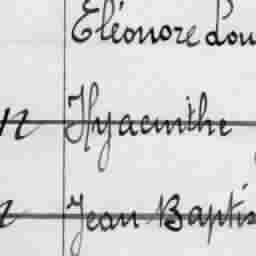 Eléonore Lou
n Hyacinthe
Jean Baptis